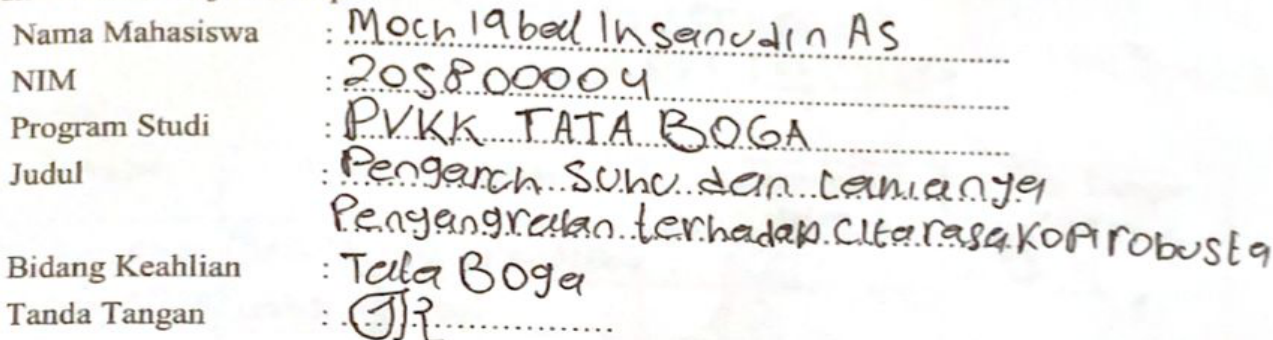 Nama Mahasiswa : Moch Iqbal Ihsanudin AS
NIM : 205800004
Program Studi : PVKK TATA BOGA
Judul : Pengaruh Suhu dan Lamanya
Penyangraian terhadap Citarasa Kopi robusta
Bidang Keahlian : Tata Boga
Tanda Tangan :